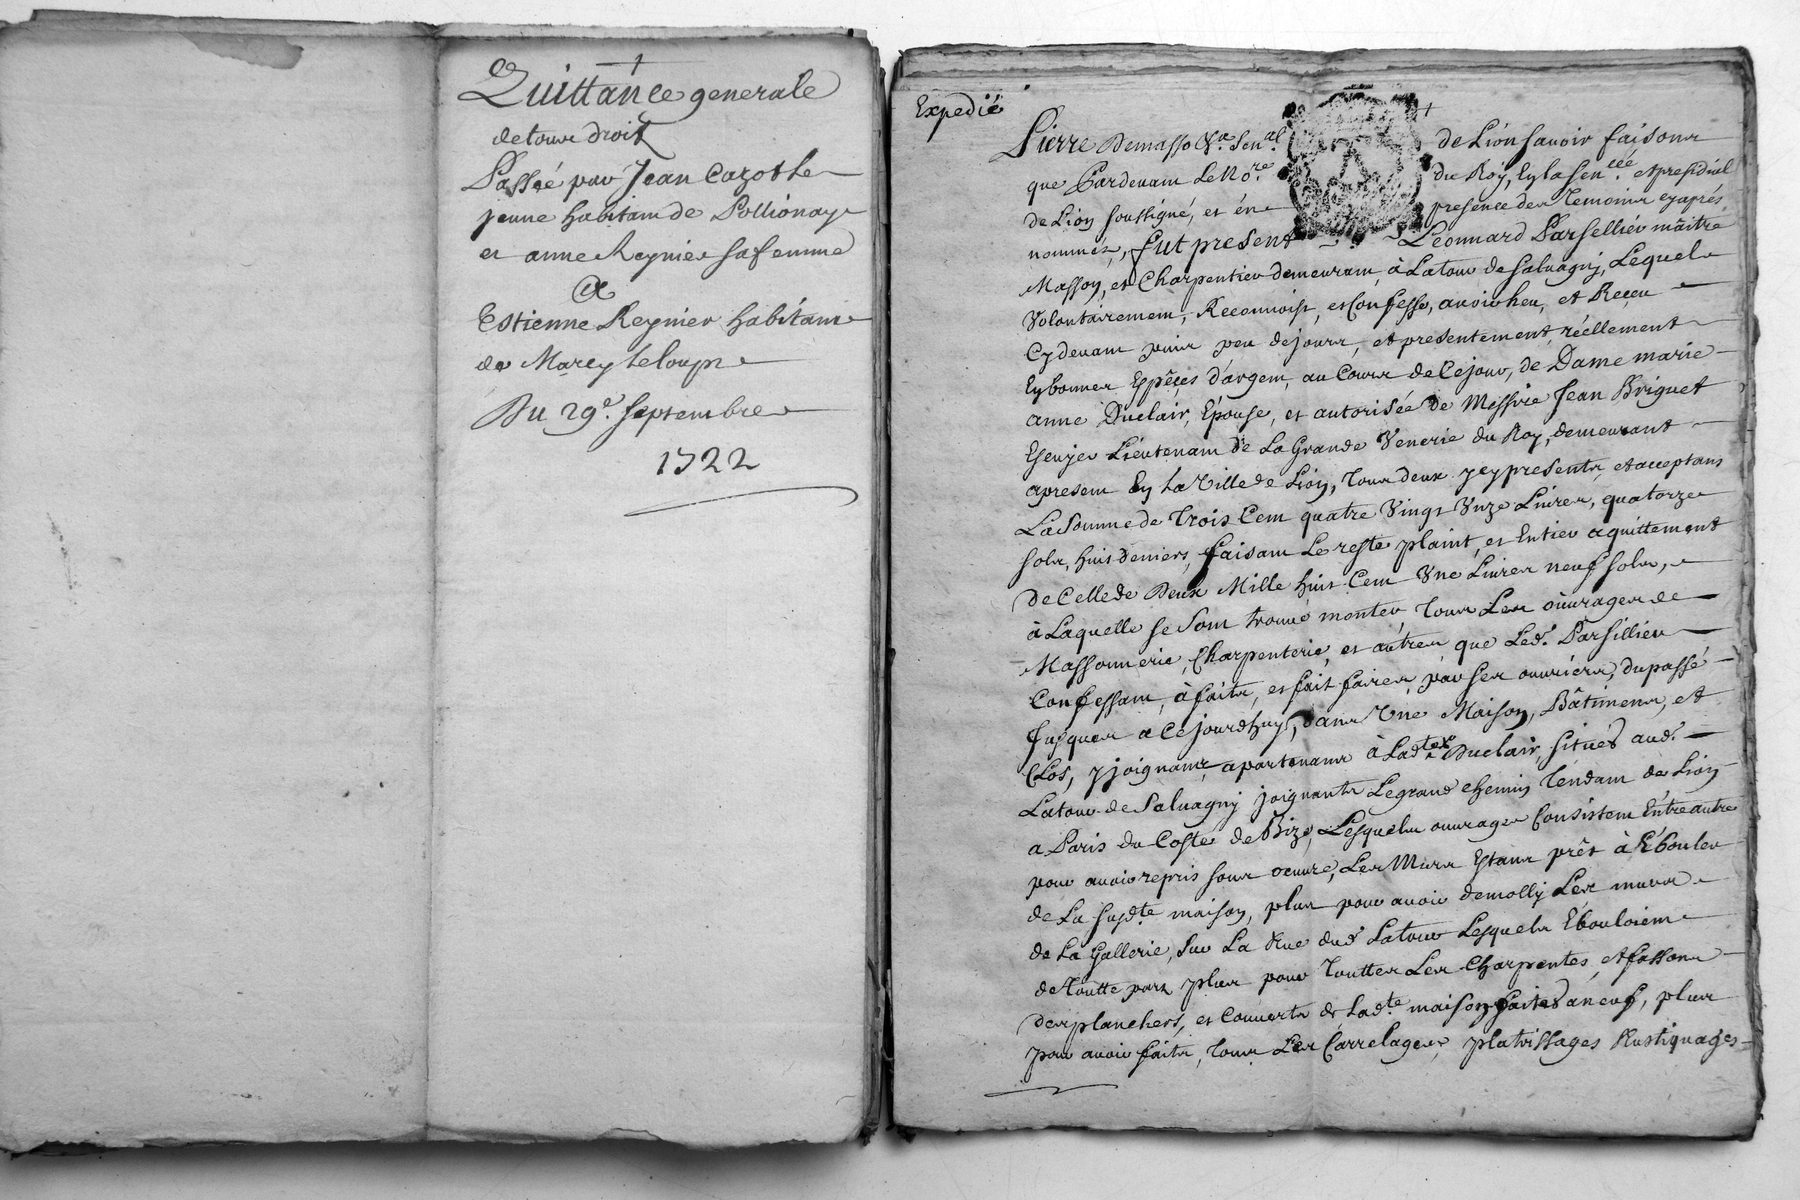 Quittance generale
de tous droit
Passée par Jean Cazot le
jeune habitant de Pollionay
et anne Reynier sa femme
a
Estienne Reynier habitant
de Marcy le loup
Du 29e. septembre
1722
Expedié
Pierre Demasso Chr. Senal. de Lion scavoir faisons
que Pardevant Le Nore. du Roy, En la Senceé. et presidial
de Lion soussigné, et en presence des Temoins cyaprés
nommés, fut present Leonnard Parsellier maître
Masson, et Charpentier demeurant à Latour de Salvagny, Lequel
Volontairement, Reconnoist, et Confesse, avoir heu, et Reçeu
Cydevant puis peu de jours, et presentement réellement
En bonnes Espêçes d'argent, au Cours de Ce jour, de Dame marie
anne Duclair, Epouse, et autorisée de Messire Jean Briguet
Escuyer Lieutenant de La Grande Venerie du Roy, demeurant
apresent En La Ville de Lion, Tous deux ycy presents, et acceptans
La Somme de Trois Cent quatre Vingt Unze Livres, quatorze
sols, huit deniers, faisant Le reste plaint, et Entier aquittement
de Celle de Deux Mille huit Cent Une Livres neuf sols,
à Laquelle se Sont trouvé monter, Tous Les oûvrages de
Massonnerie, Charpenterie, et autres que Led. Parsillier
Confessant, à faits, et fait faires, par ses ouvriers, du passé
jusques a Ce jourdhuy, dans Une Maison, Bâtiments, et
Clos, y joignants apartenants à Ladte. Duclair, situés aud.
Latour de Salvagny joignants Le grand chemin Tendant de Lion
a Paris du Costé de Bize, Lesquels ouvrages Consistent Entre autre
pour avoir repris sous oeuvre, Les Murs Estans prêt à Ebouler
de La susdte. maison, plus pour avoir demolly Les murs
de La Gallerie, sur La Rue dud. Latour Lesquels Ebouloient
de toutte part plus pour Touttes Les Charpentes, et fassons
des planchers, et Couverts de Ladte. maison faites a neuf, plus
pour avoir faits, Tous Les Carrelages, platrissages Rustiquages